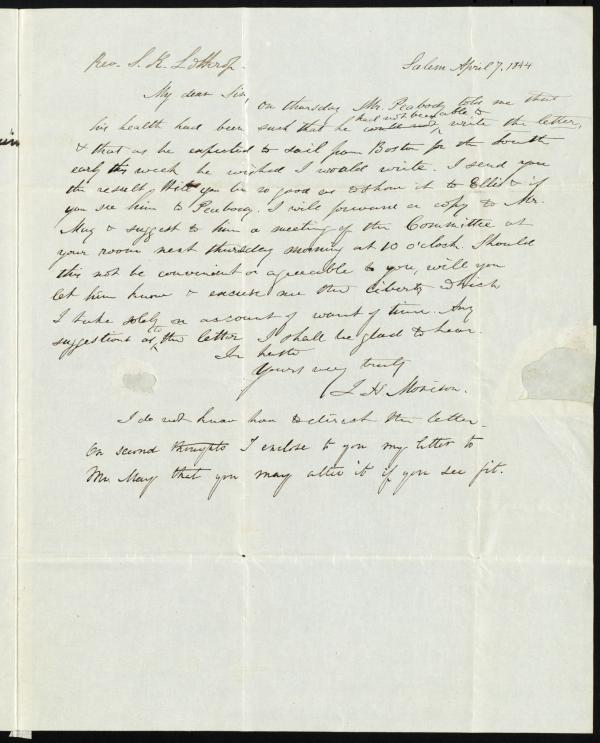 Rev. S. K. Lothrop.
Salem April 7, 1844
My dear Sir,
On thursday Mr. Peabody told me that
his health had been such that he could not had not been able to write the letter,
& that as he expected to sail from Boston for the South
early this week he wished I would write. I send you
the result. Will you be so good as to show it to Ellis & if
you see him to Peabody. I will forward a copy to Mr.
May & suggest to him a meeting of the Committee at
your room next thursday morning at 10 o'clock. Should
this not be convenient or agreeable to you, will you
let him know & excuse me the liberty which
I take solely on account of want of time. Any
suggestions as to the letter I shall be glad to hear.
In haste
Yours very truly
J. H. Morison.
I do not know how to direct the letter.
On second thoughts I enclose to you my letter to
Mr. May that you may alter it if you see fit.